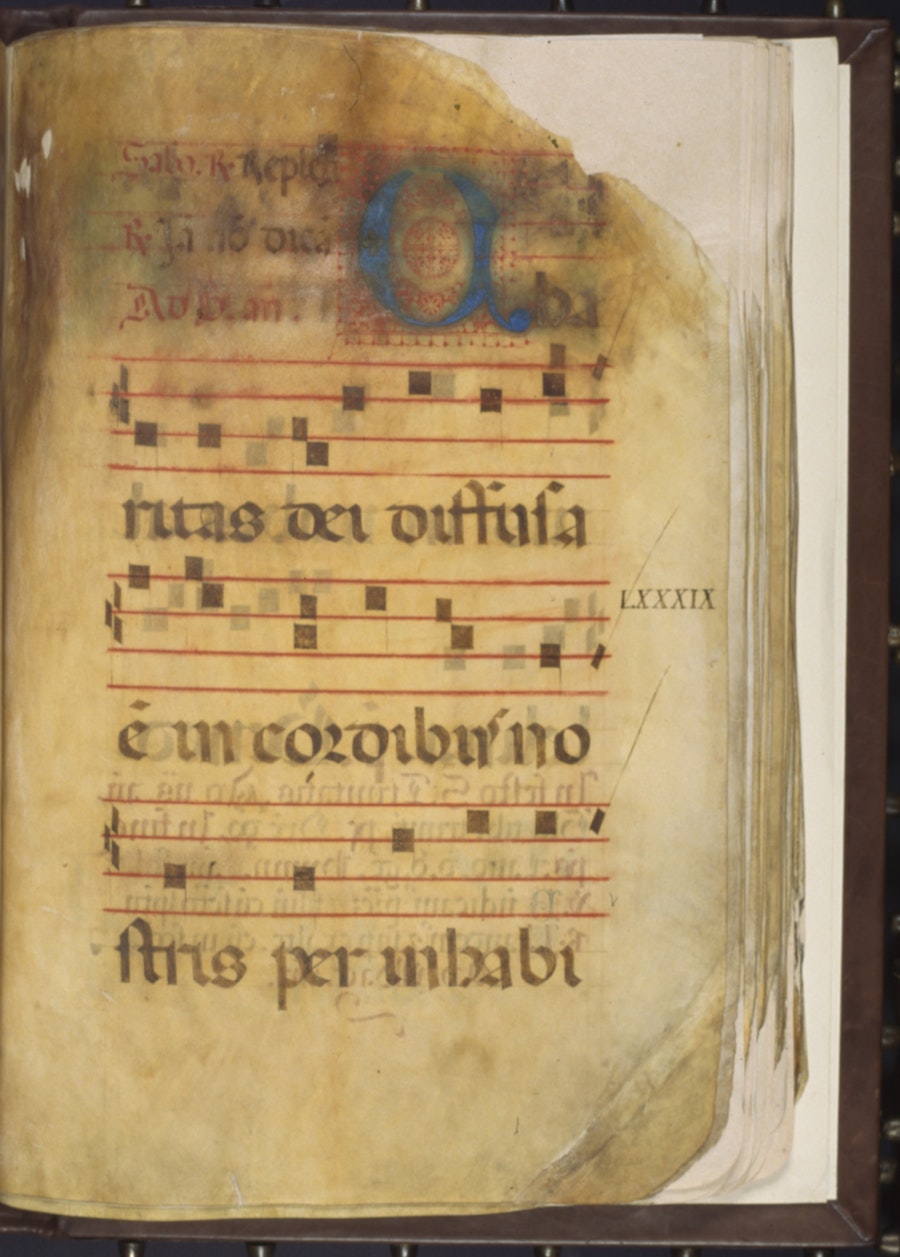 Sabo. ℟. Repleti
℟. Ja nō dicā
Ad b. an. Cha
ritas dei diffusa
ē in cordibus no
LXXXIX
stris per inhabi